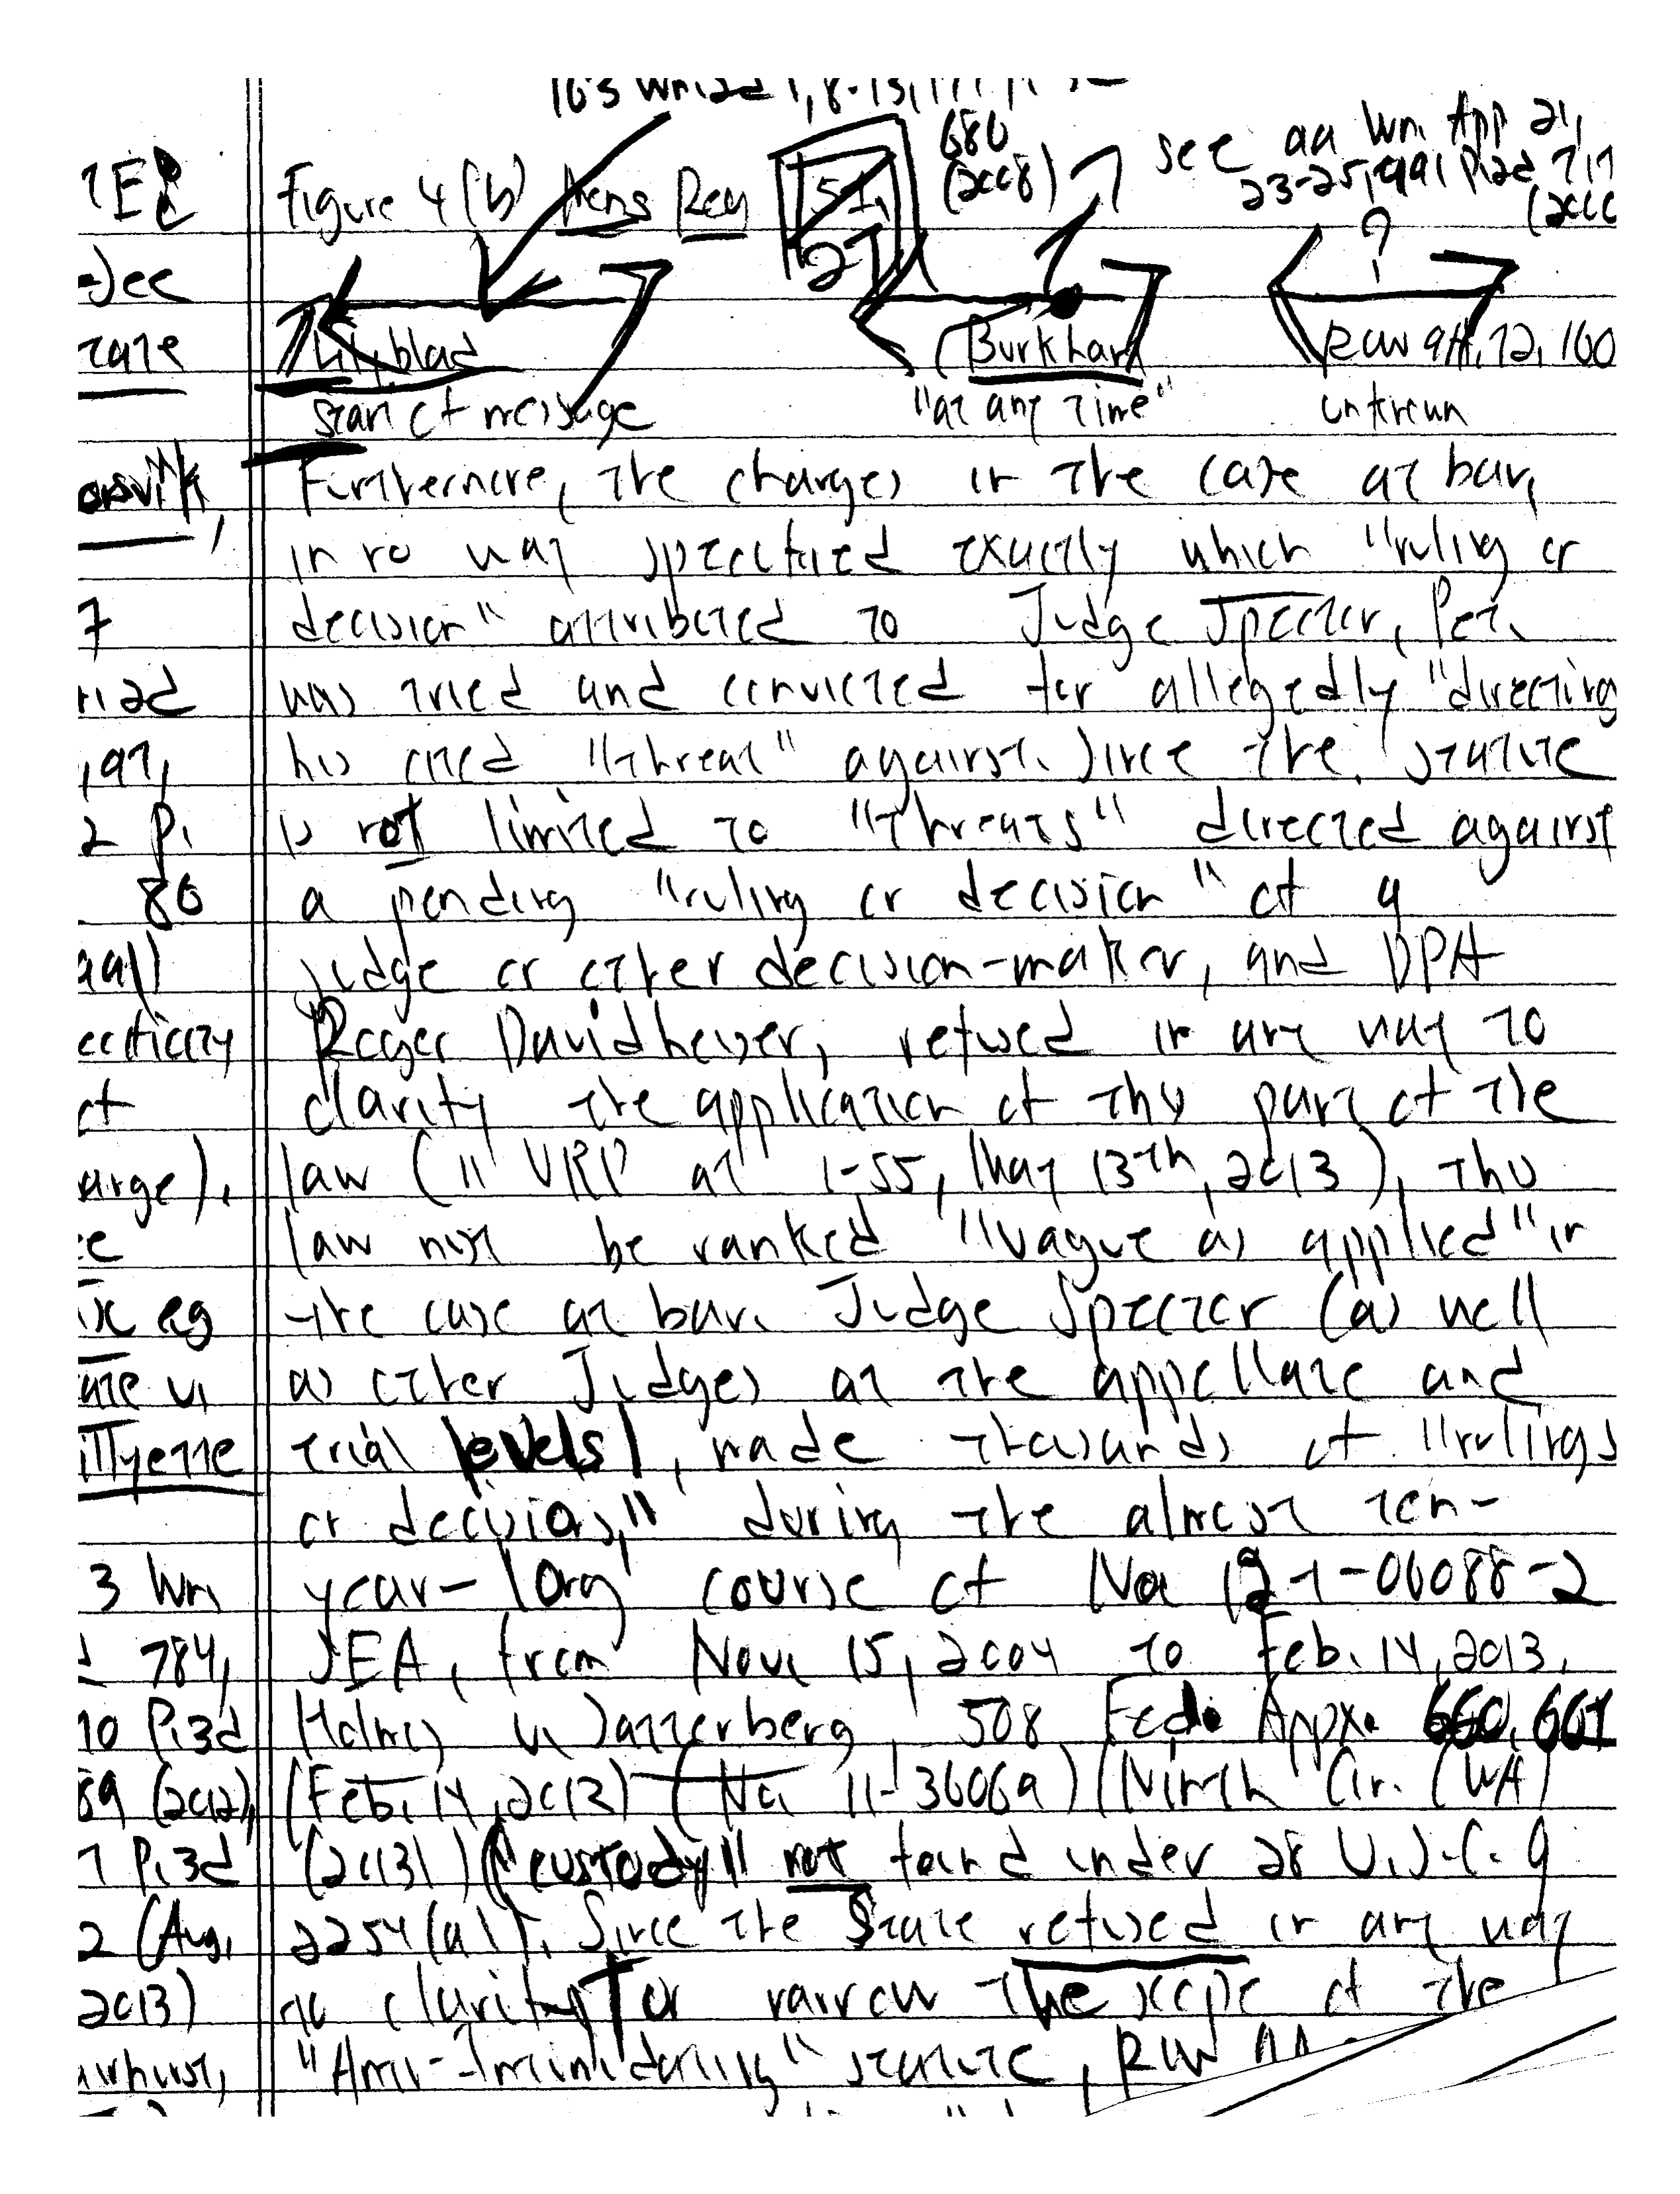 163 Wn.2d 1, 8-13, 177 P.3d
680 (2008)
see 99 Wn. App 21, 23-25, 991 P.2d 717 (2000
Figure 4 (b) Mens Rea
?
Lilyblad
Burkhart
RCW 9A.72.160
start of message
"at any time"
unknown
Furthermore, the charges in the case at bar,
in no way specified exactly which "ruling or
decision" attributed to Judge Spector, Pet.
was tried and convicted for allegedly "directing
his cited "threat" against. Since the statute
is not limited to "threats" directed against
a pending "ruling or decision" of a
judge or other decision-maker, and DPA
Roger Davidheiser, refused in any way to
clarify the application of this part of the
law (11 VRP at 1-55, May 13th, 2013), this
law must be ranked "vague as applied" in
the case at bar. Judge Spector (as well
as other Judges at the appellate and
trial levels), made thousands of "rulings
or decisions," during the almost ten-
year-long course of No. 02-1-06088-2
SEA, from Nov. 15, 2004 to Feb. 14, 2013.
Holmes v. Satterberg, 508 Fed. Appx. 660, 661
(Feb. 14, 2013) (No. 11-36069) (Ninth Cir. (WA)
(2013)) ("custody" not found under 28 U.S.C. §
2254(a)). Since the State refused in any way
to clarify or narrow the scope of the
"Anti-Intimidating" statute, RCW
ate
7
80
ct
arge).
3 Wn.
784,
P.3d
89 (2012),
P.3d
2 (Aug.
2013)